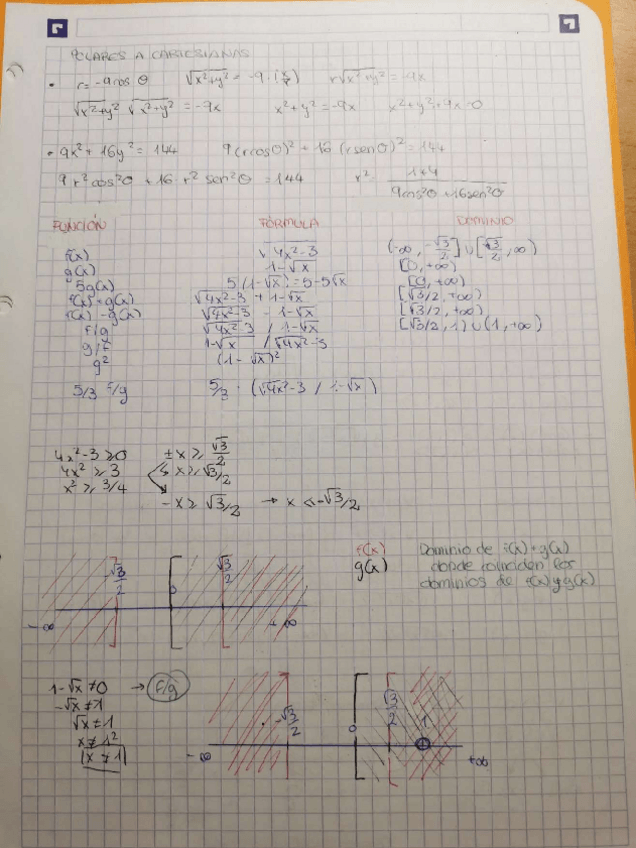 POLARES A CARTESIANAS
• r = -9cos θ √x²+y² = -9·(x/r) r√x²+y² = -9x
√x²+y² √x²+y² = -9x x²+y² = -9x x²+y²+9x=0
• 9x² + 16y² = 144 9(r cosθ)² + 16 (r senθ)² = 144
9r² cos²θ + 16·r² sen²θ = 144 r² = 144 / 9cos²θ + 16sen²θ
FUNCIÓN FÓRMULA DOMINIO
f(x) √4x²-3 (-∞, -√3/2] ∪ [√3/2, ∞)
g(x) 1-√x [0, +∞)
5g(x) 5(1-√x) = 5-5√x [0, +∞)
f(x)+g(x) √4x²-3 + 1-√x [√3/2, +∞)
f(x)-g(x) √4x²-3 - 1-√x [√3/2, +∞)
f/g √4x²-3 / 1-√x [√3/2, 1) ∪ (1, +∞)
g/f 1-√x / √4x²-3
g² (1-√x)²
5/3 f/g 5/3 · (√4x²-3 / 1-√x)
4x²-3 ≥ 0 ±x ≥ √3/2
4x² ≥ 3 x ≥ √3/2
x² ≥ 3/4
-x ≥ √3/2 → x ≤ -√3/2
f(x) Dominio de f(x)+g(x)
g(x) donde coinciden los
dominios de f(x) y g(x)
√3/2 0 √3/2
-∞ +∞
1-√x ≠ 0 → f/g
-√x ≠ 1
√x ≠ 1
x ≠ 1²
x ≠ 1
-√3/2 0 √3/2 1
-∞ +∞